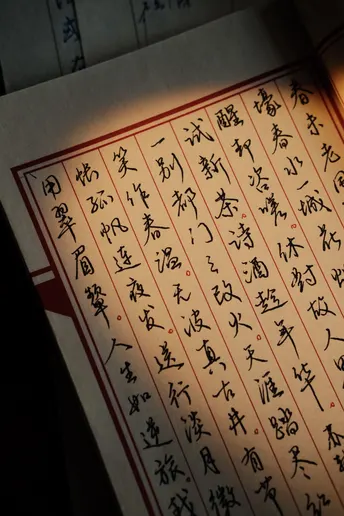 春未老
壕春水一城花
醒却咨嗟。休对故人思
试新茶。诗酒趁年华
一别都门三改火。天涯踏尽
笑作春温。无波真古井。有
怅孤帆连夜发。送行淡月微
用翠眉颦。人生如逆旅。我